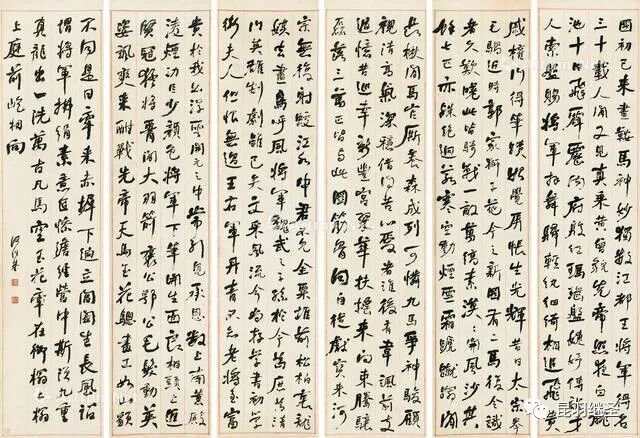 國初已來畫鞍馬神妙獨數江都王將軍得名
三十載人間又見真乘黃曾貌先帝照夜白龍
池十日飛霹靂內府殷紅瑪瑙盤婕妤傳詔才
人索盤賜將軍拜舞歸輕紈細綺相追飛貴
戚權門得筆跡始覺屏障生光輝昔日太宗拳
毛騧近時郭家獅子花今之新圖有二馬復令識
者久歎嗟此皆騎戰一敵萬縞素漠漠開風沙其
餘七匹亦殊絕迥若寒空動煙雪霜蹄蹴踏
長楸間馬官廝養森成列可憐九馬爭神駿顧
視清高氣深穩借問苦心愛者誰韋諷前支
遁憶昔巡幸新豐宮翠華來向東騰驤
磊落三萬匹皆與此圖筋骨同自從獻寶來河
宗無復射蛟江水中君不見金粟堆前松柏裏龍
媒去盡鳥呼風將軍魏武之子孫於今為庶為清
門英雄割據雖已矣文采風流今尚存學書初學
衛夫人但恨無過王右軍丹青不知老將至富
貴於我如浮雲開元之中常引見承恩數上南薰殿
淩煙功臣少顏色將軍下筆開生面良相頭上進
賢冠猛將腰間大羽箭褒公鄂公毛髮動英
姿颯爽來酣戰先帝天馬玉花驄畫工如山貌
不同是日牽來赤墀下迥立閶闔生長風詔
謂將軍拂絹素意匠慘澹經營中斯須九重
真龍出一洗萬古凡馬空玉花牽在御榻榻
上庭前屹相向
何紹基
昆羽继圣